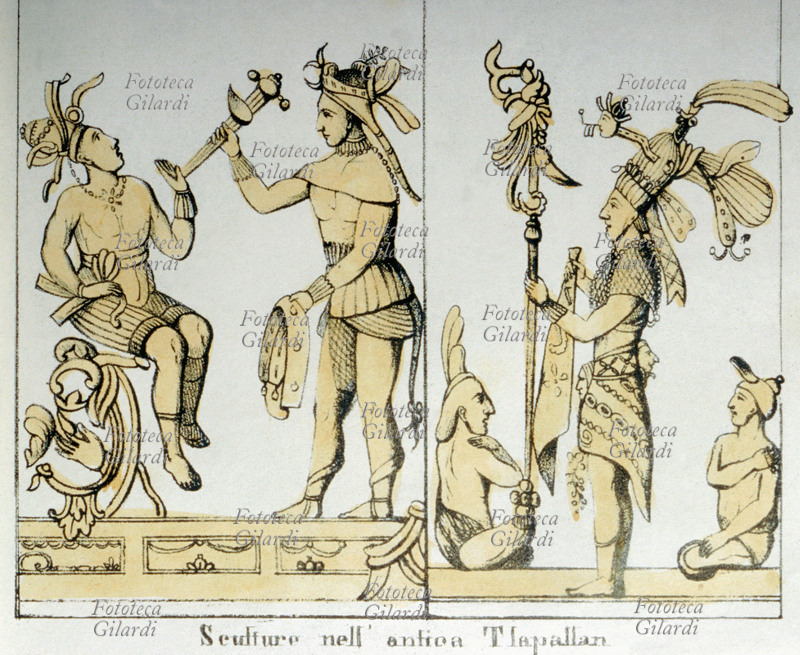 Fototeca
Gilardi
Fototeca
Gilardi
Fototeca
Gilardi
Fototeca
Gilardi
Fototeca
Gilardi
Fototeca
Gilardi
Fototeca
Gilardi
Fototeca
Gilardi
Fototeca
Gilardi
Fototeca
Gilardi
Fototeca
Gilardi
Fototeca
Gilardi
Fototeca
Gilardi
Fototeca
Gilardi
Fototeca
Gilardi
Fototeca
Gilardi
Fototeca
Gilardi
Fototeca
Gilardi
Sculture nell' antica Tlapallan